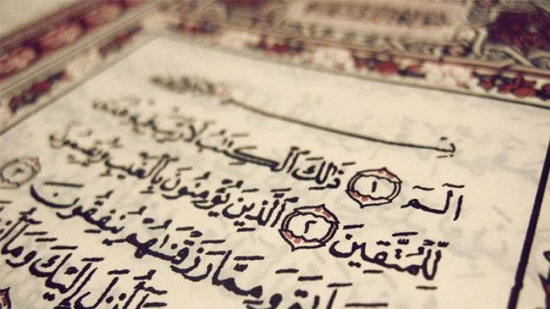 بِسْمِ
الٓمٓ ١ ذَٰلِكَ ٱلْكِتَٰبُ لَا رَيْبَ فِيهِ هُدًى
لِّلْمُتَّقِينَ ٢ ٱلَّذِينَ يُؤْمِنُونَ بِٱلْغَيْبِ وَيُقِيمُونَ
وَمِمَّا رَزَقْنَٰهُمْ يُنفِقُونَ ٣
أُنزِلَ إِلَيْكَ وَمَآ